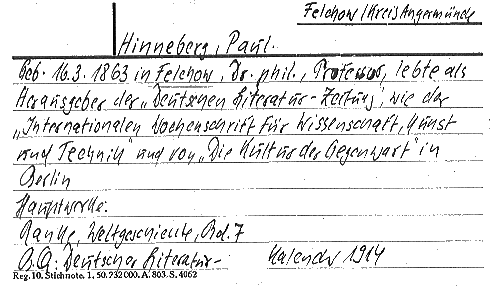 Felchow/Kreis Angermünde
Hinneberg, Paul.
Geb. 16.3. 1863 in Felchow, Dr. phil., Professor, lebte als
Herausgeber der „Deutschen Literatur-Zeitung", wie der
„Internationalen Wochenschrift für Wissenschaft, Kunst
und Technik" und von „Die Kultur der Gegenwart" in
Berlin
Hauptwerke:
Ranke, Weltgeschichte, Bd. 7
B.Q.: Deutscher Literatur- Kalender 1914
Reg. 10. Stichnote. 1, 50. 732 000. A. 803. S. 4062